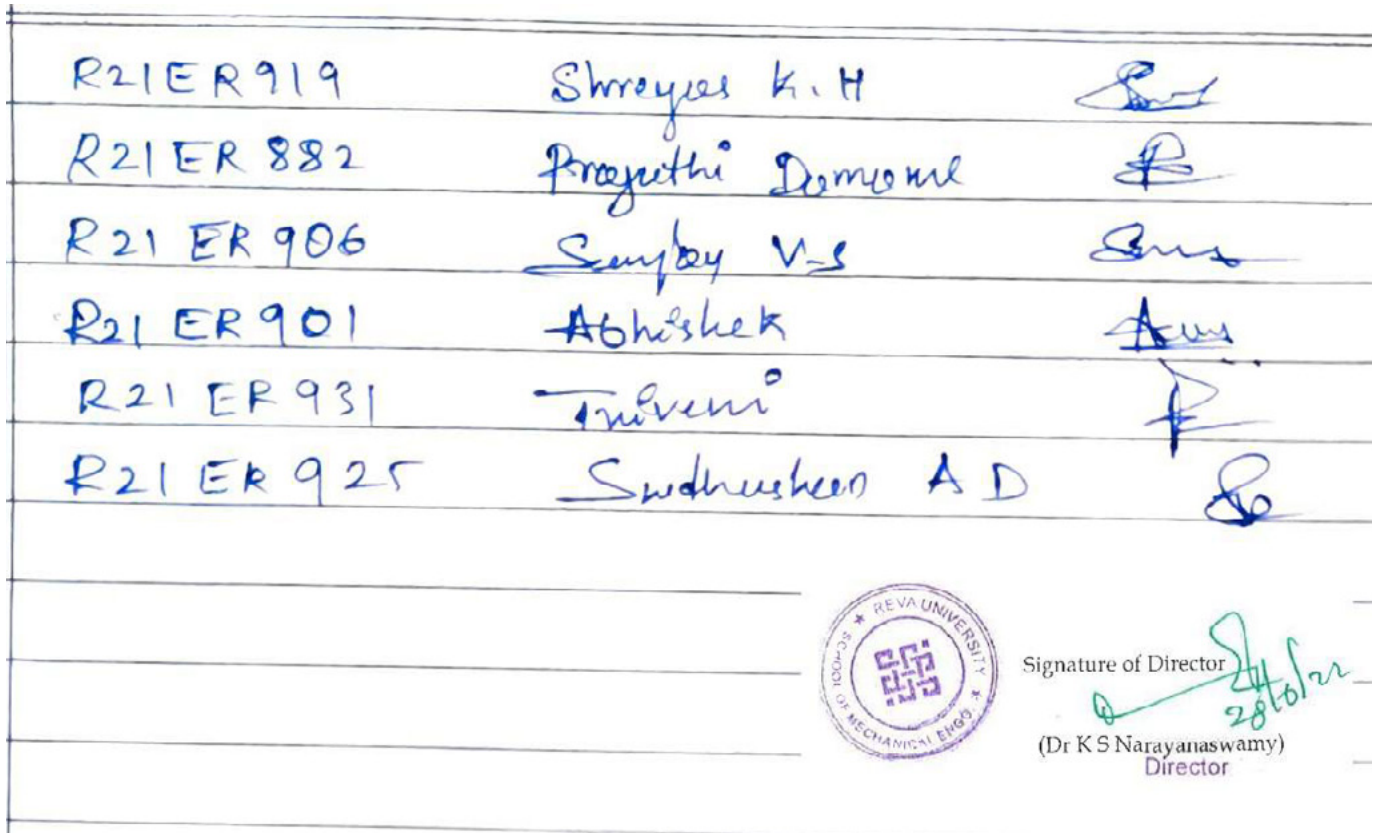 R21ER919 Shreyas K.H
R21ER 882
R21 ER 906 Sanjay V-S
R21 ER 901 Abhishek
R21 ER 931 Triveni
R21 ER 925 A D
★ REVA UNIVERSITY ★
SCHOOL OF MECHANICAL ENGG.
Signature of Director
(Dr K S Narayanaswamy)
Director